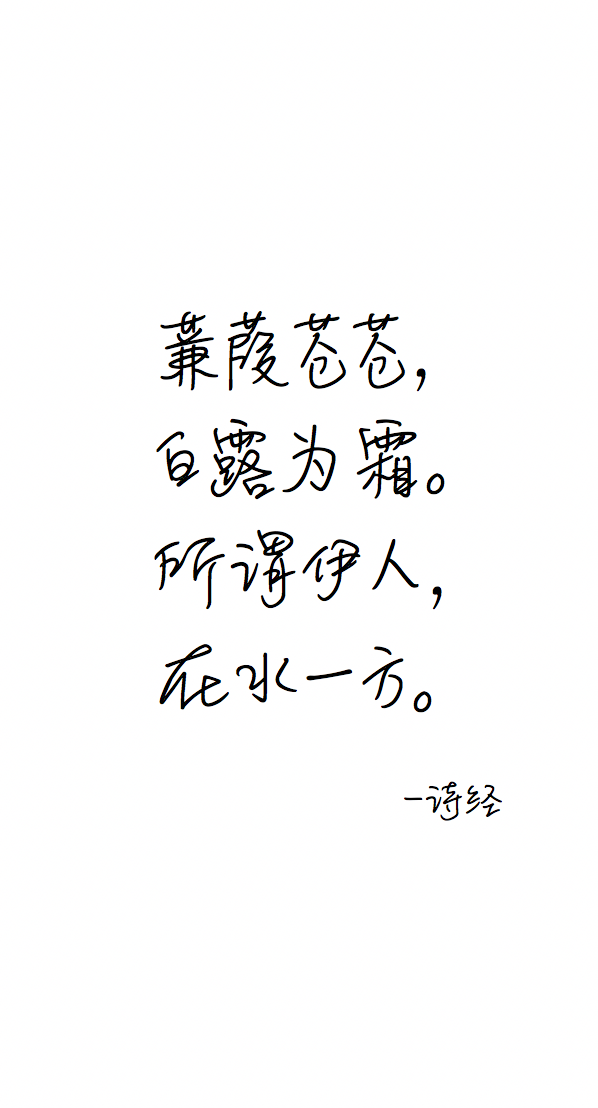 蒹葭苍苍，
白露为霜。
所谓伊人，
在水一方。
—诗经